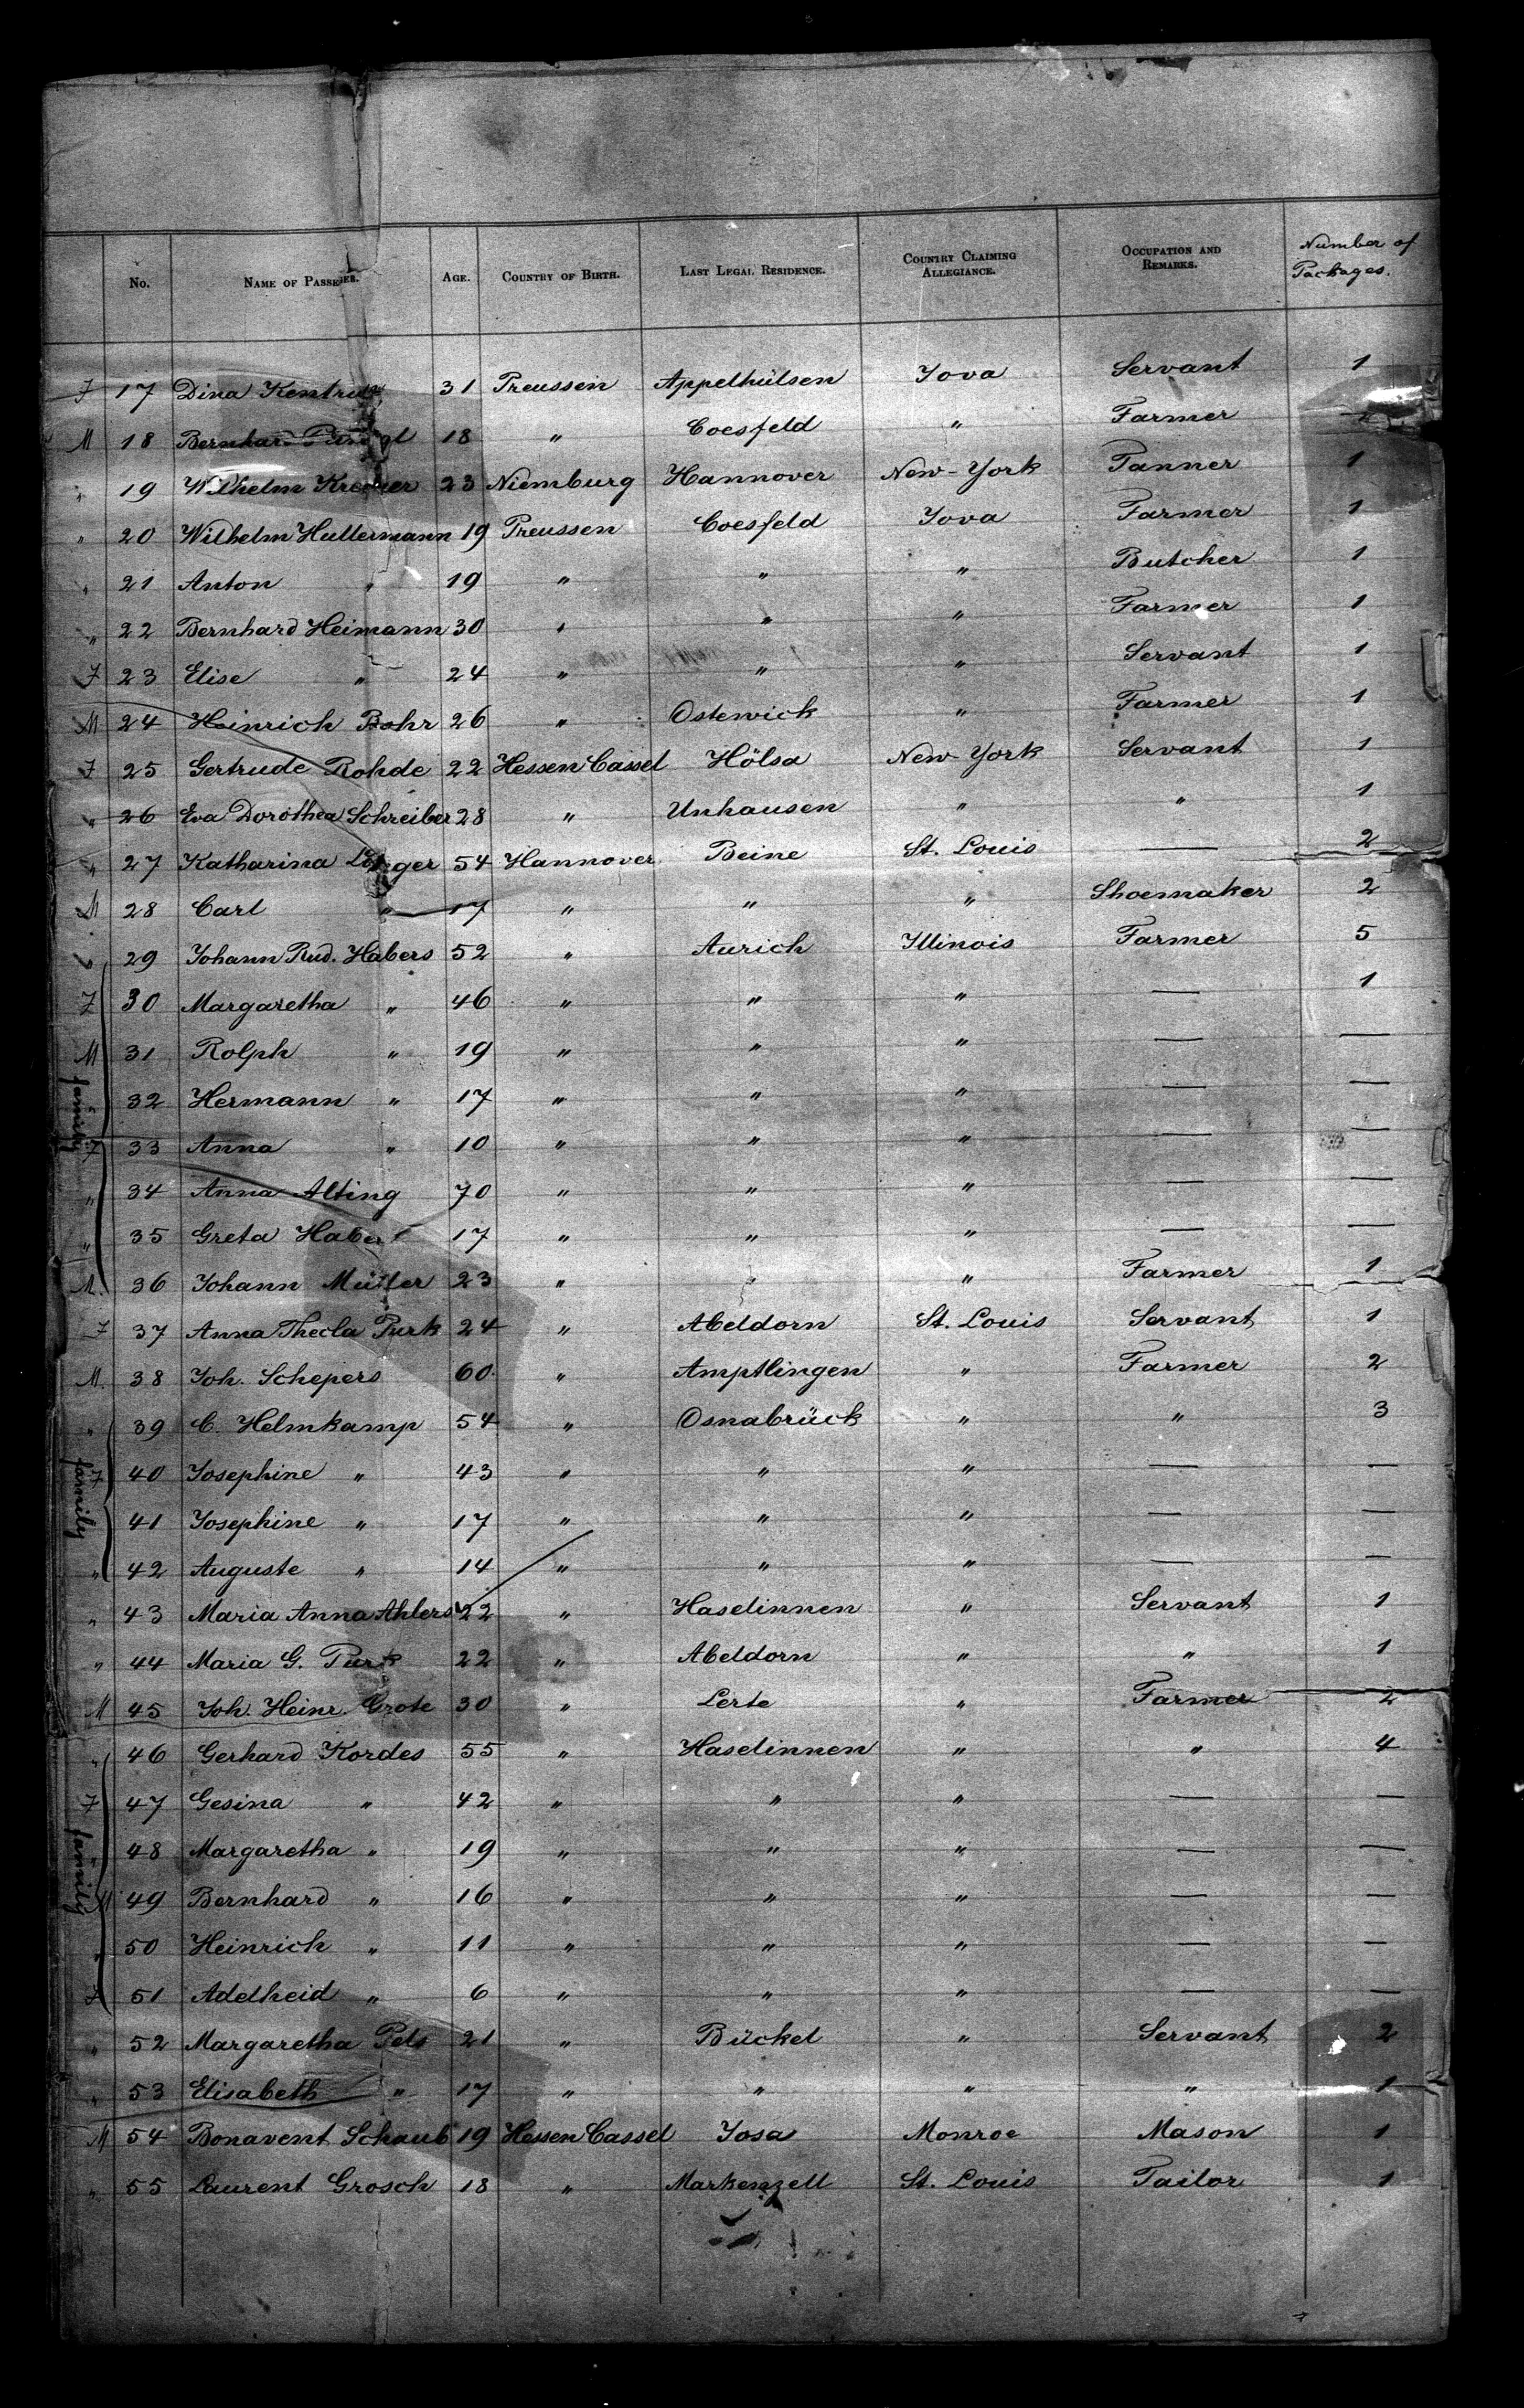 No. NAME OF PASSENGER. AGE. COUNTRY OF BIRTH. LAST LEGAL RESIDENCE. COUNTRY CLAIMING ALLEGIANCE. OCCUPATION AND REMARKS. Number of Packages.
F 17 Dina 31 Preussen Appelhülsen Iova Servant 1
M 18 Bernhard 18 " Coesfeld " Farmer
" 19 Wilhelm 23 Niemburg Hannover New-York Tanner 1
" 20 Wilhelm Hullermann 19 Preussen Coesfeld Iova Farmer 1
" 21 Anton " 19 " " " Butcher 1
" 22 Bernhard Heimann 30 " " " Farmer 1
F 23 Elise " 24 " " " Servant 1
M 24 Heinrich Bohr 26 " Osterwick " Farmer 1
F 25 Gertrude Rohde 22 Hessen Cassel Hölsa New-York Servant 1
" 26 Eva Dorothea Schreiber 28 " Unhausen " " 1
" 27 Katharina 54 Hannover Beine St. Louis — 2
M 28 Carl " 17 " " " Shoemaker 2
" 29 Johann Rud. Habers 52 " Aurich Illinois Farmer 5
F 30 Margaretha " 46 " " " — 1
M 31 Rolph " 19 " " " — —
family " 32 Hermann " 17 " " " — —
F 33 Anna " 10 " " " — —
" 34 Anna Alting 70 " " " — —
" 35 Greta 17 " " " — —
M. 36 Johann Müller 23 " " " Farmer 1
F 37 Anna Thecla Purk 24 " Abeldorn St. Louis Servant 1
M. 38 Joh. Schepers 60 " Amptlingen " Farmer 2
" 39 C. Helmkamp 54 " Osnabrück " " 3
family F 40 Josephine " 43 " " " — —
" 41 Josephine " 17 " " " — —
" 42 Auguste " 14 " " " — —
" 43 Maria Anna Ahlers 22 " Haselinnen " Servant 1
" 44 Maria G. Purk 22 " Abeldorn " " 1
M 45 Joh. Heinr. Grote 30 " Lerte " Farmer 2
" 46 Gerhard Kordes 55 " Haselinnen " " 4
F 47 Gesina " 42 " " " — —
family " 48 Margaretha " 19 " " " — —
M 49 Bernhard " 16 " " " — —
" 50 Heinrich " 11 " " " — —
F 51 Adelheid " 6 " " " — —
" 52 Margaretha Pels 21 " Bückel " Servant 2
" 53 Elisabeth " 17 " " " " 1
M 54 Bonavent Schaub 19 Hessen Cassel Josa Monroe Mason 1
" 55 Laurent Grosch 18 " Markenzell St. Louis Tailor 1